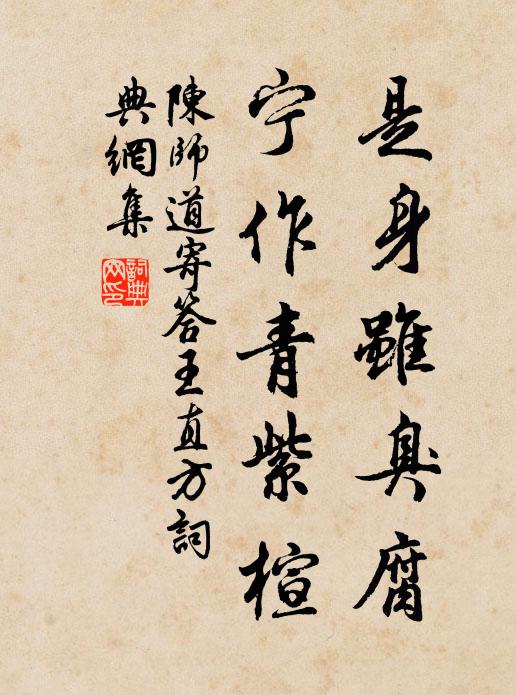 是身雖臭腐
宁作青紫楦
陳師道寄答王直方詞
典網集
詞典
网印